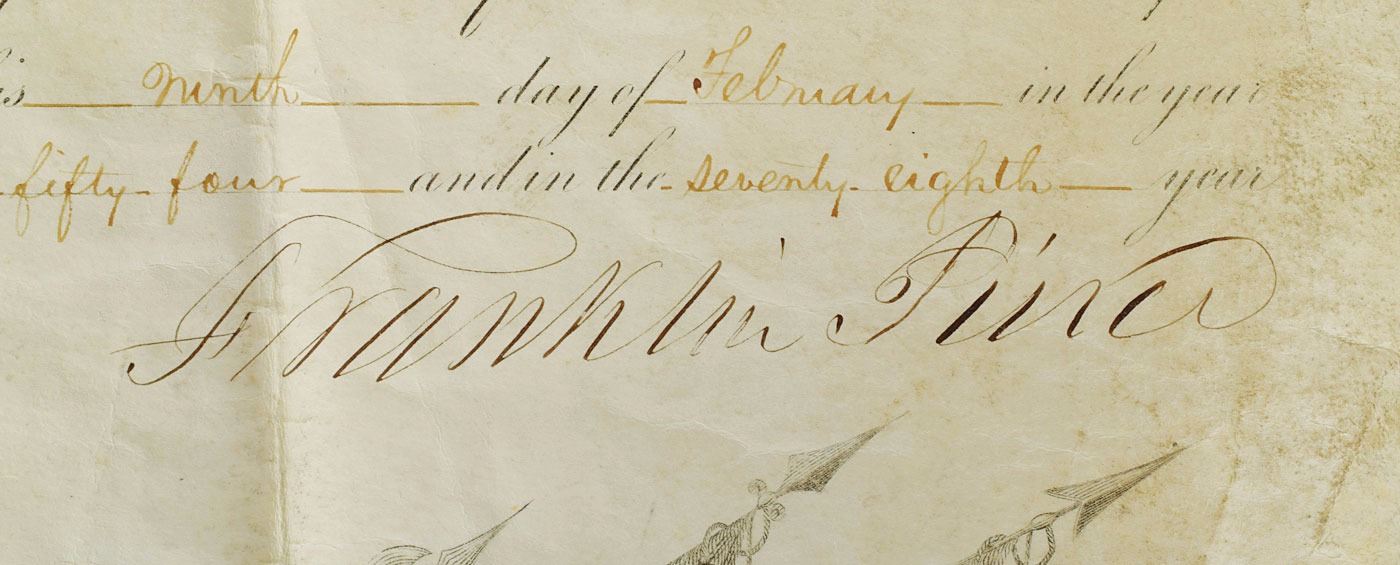 ninth day of February in the year
fifty-four and in the seventy-eighth year
Franklin Pierce